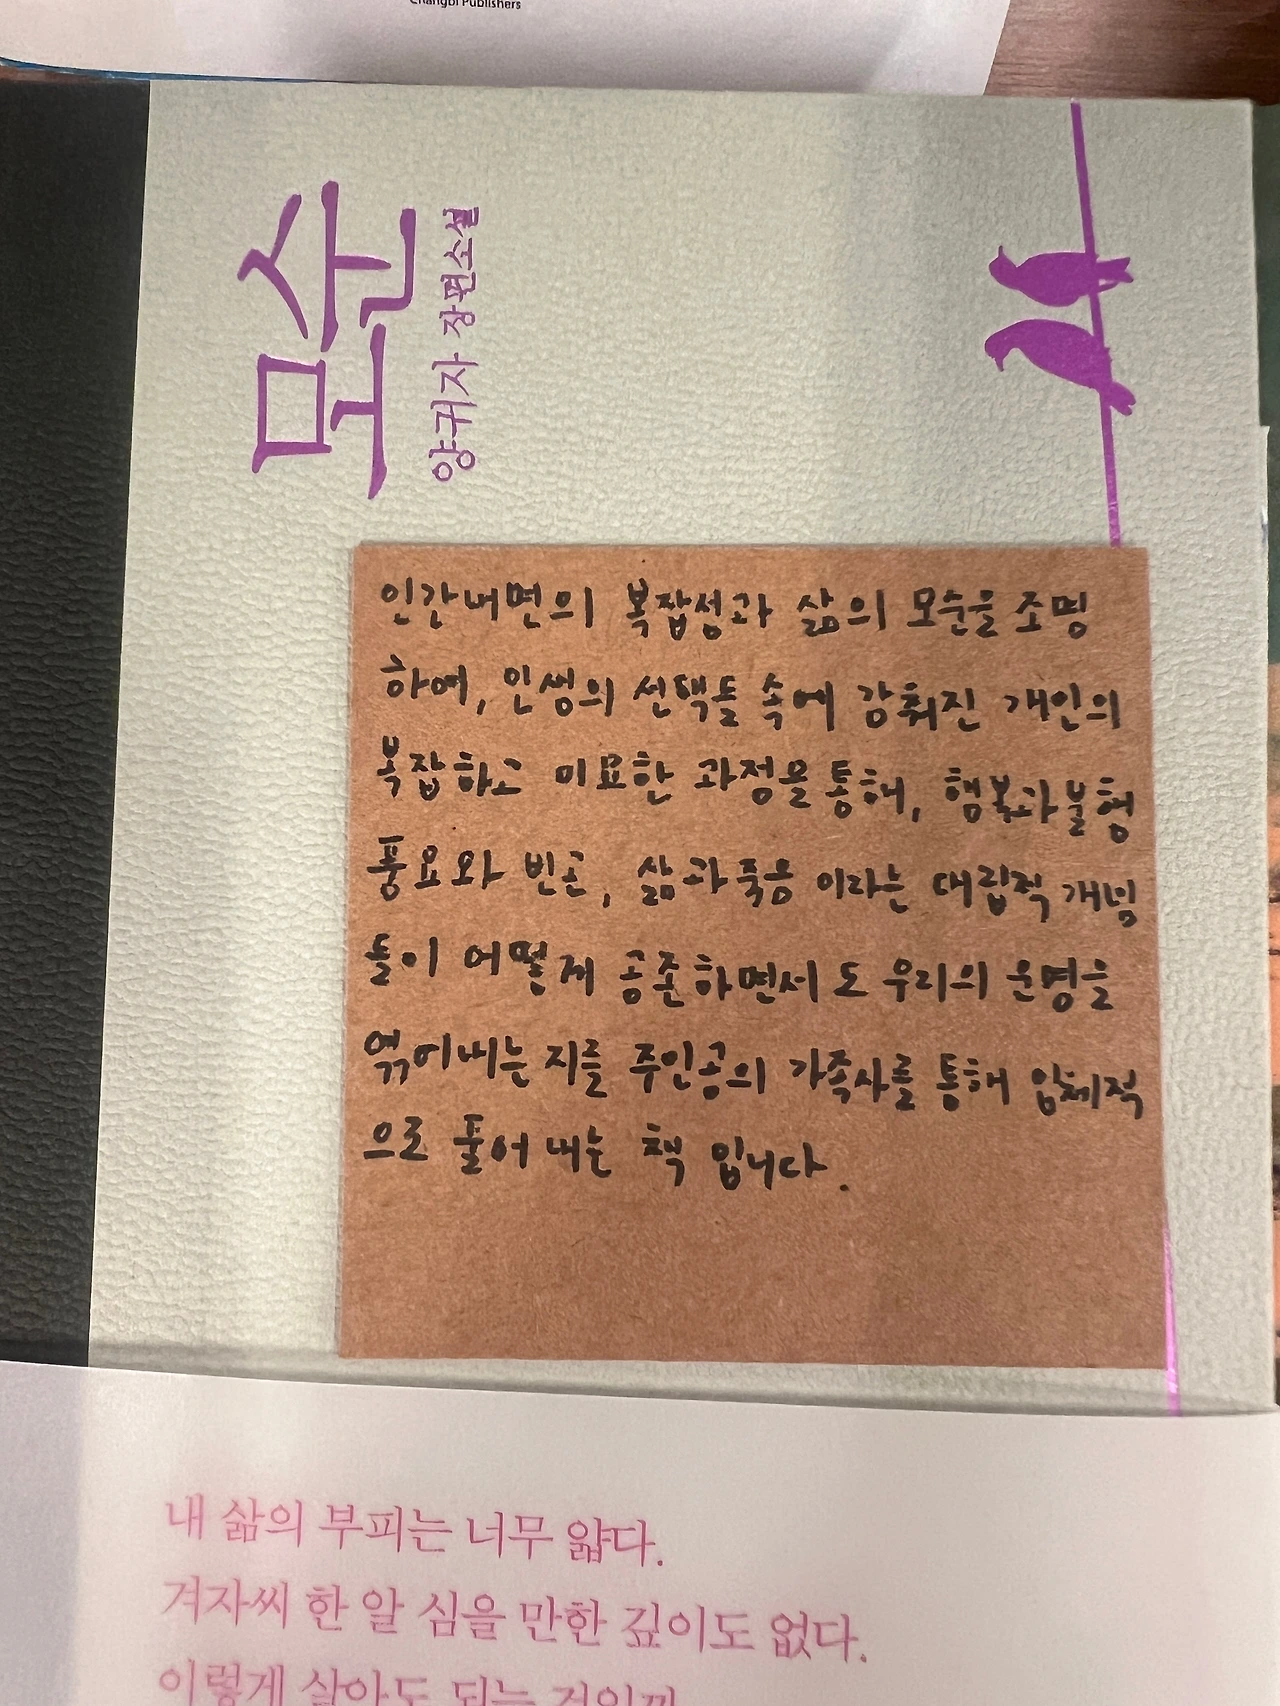 Changbi Publishers
모순
양귀자 장편소설
인간내면의 복잡성과 삶의 모순을 조명
하여, 인생의 선택들 속에 감춰진 개인의
복잡하고 미묘한 과정을 통해, 행복과 불행
풍요와 빈곤, 삶과 죽음 이라는 대립적 개념
들이 어떻게 공존하면서도 우리의 운명을
엮어내는 지를 주인공의 가족사를 통해 입체적
으로 풀어 내는 책 입니다.
내 삶의 부피는 너무 얇다.
겨자씨 한 알 심을 만한 깊이도 없다.
이렇게 살아도 되는 것일까